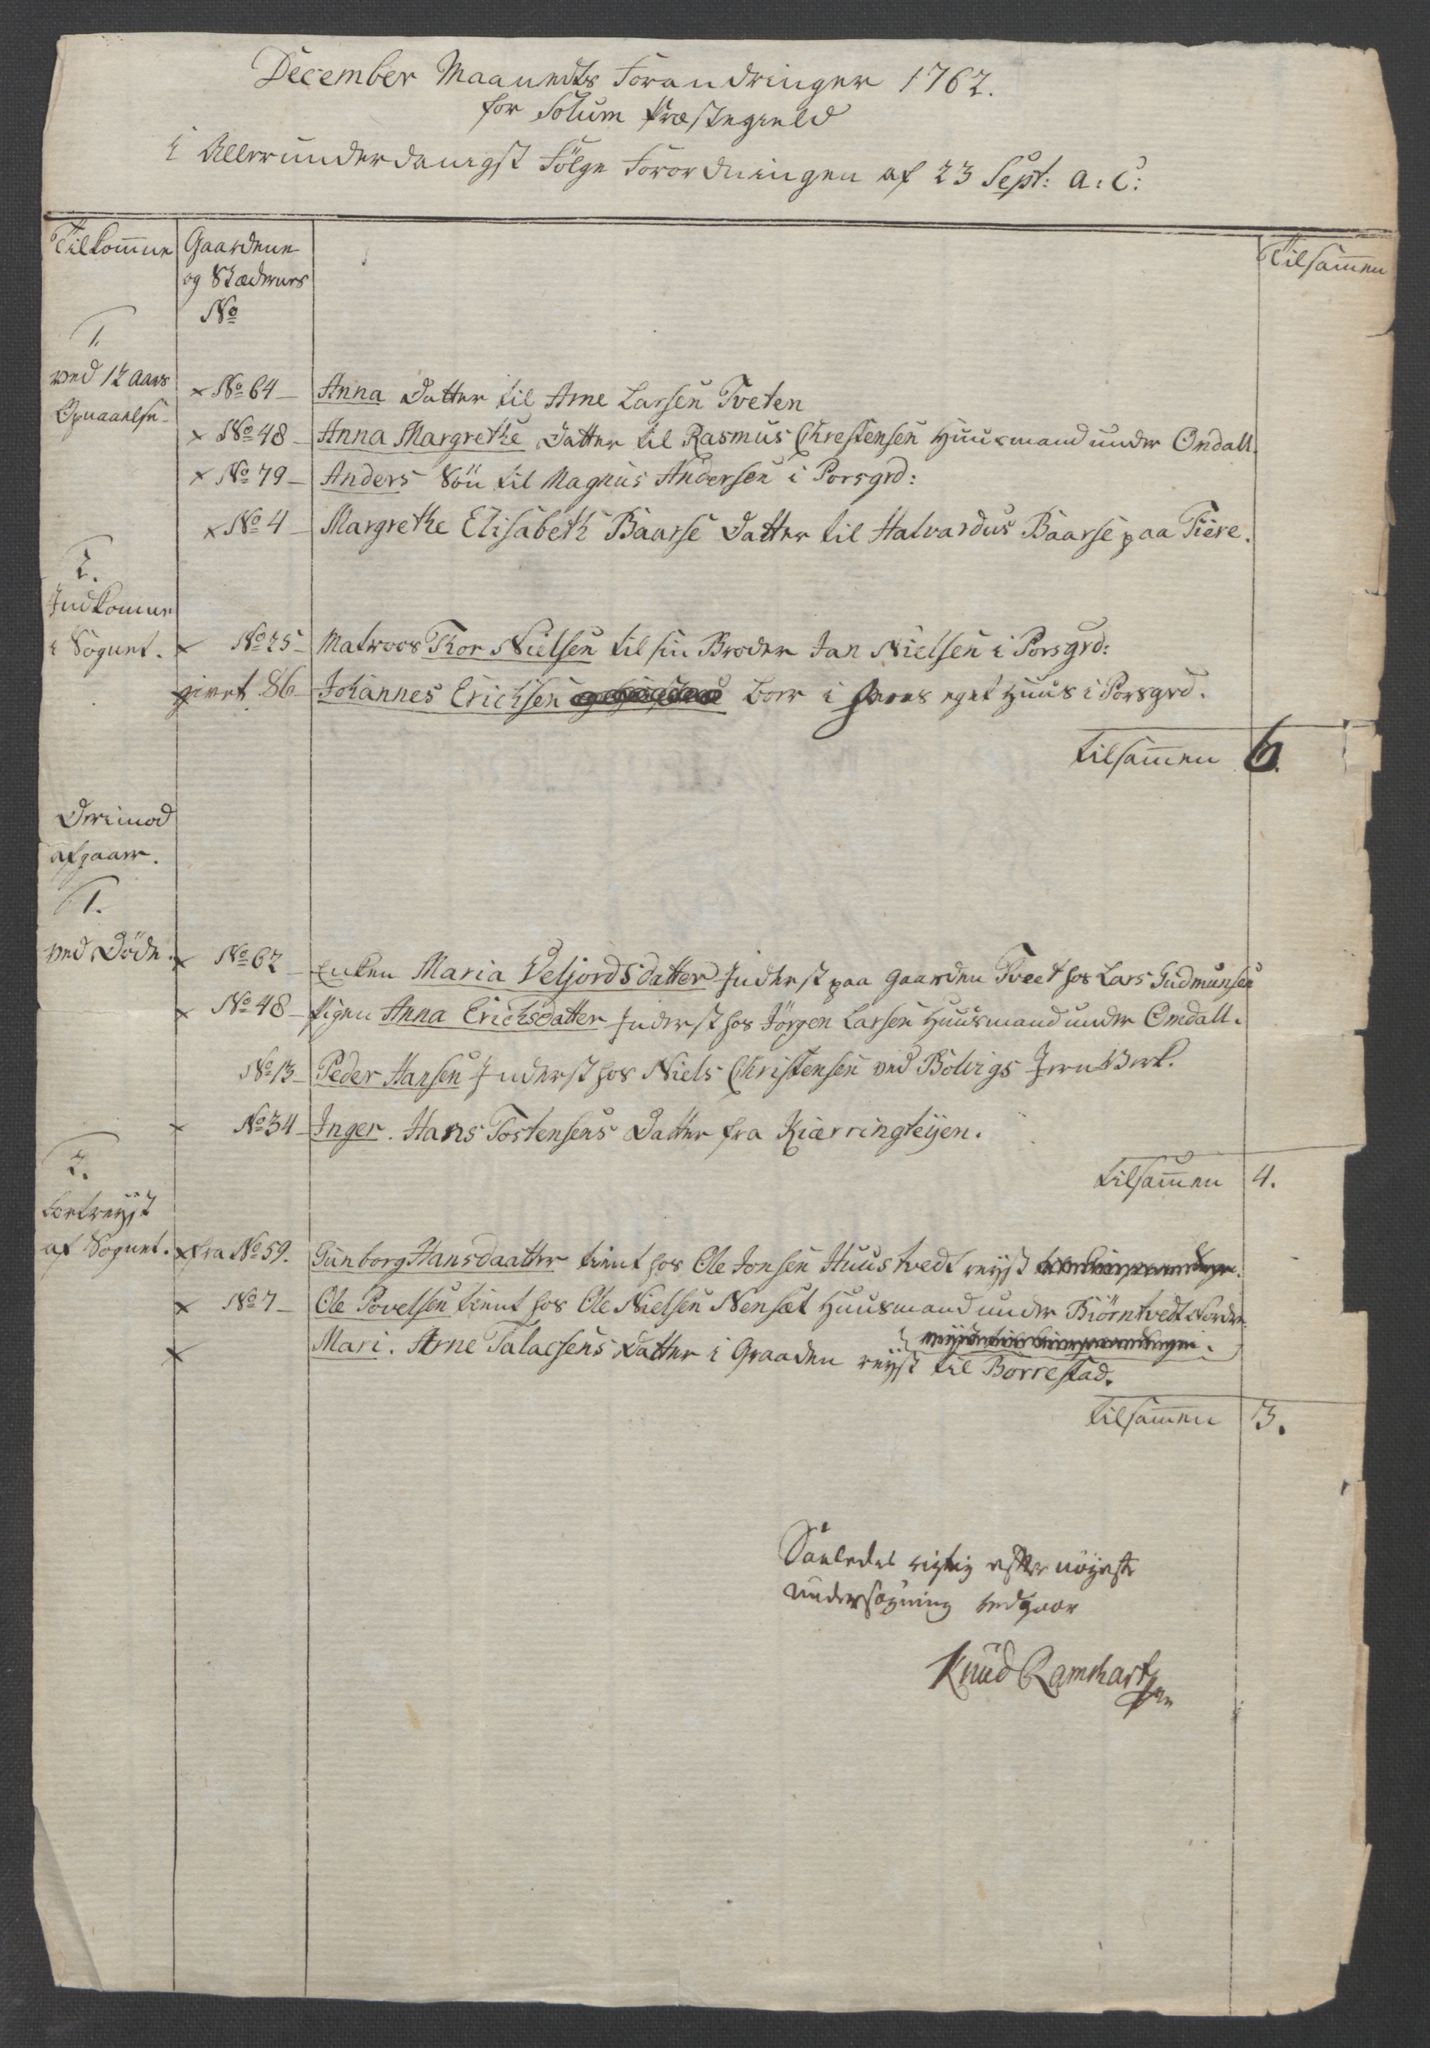 December Maanedts Forandringer 1762.
for Solum Præstegield
i Allerunderdanigst Fölge Forordningen af 23 Sept: a: c:
Tilkomne
Gaardene
og Stædernes
No
Tilsammen
1.
ved 12 Aars
Opnaaelse
x No 64 – Anna Datter til Arne Larsen Tveten
x No 48 – Anna Margrethe Datter til Rasmus Christensen Huusmand under Omdall.
x No 79 – Anders Sön til Magnus Andersen i Porsgrd:
x No 4 – Margrethe Elisabeth Baarse Datter til Halvardus Baarse paa Fiere.
2.
Indkomne
i Sognet. x No 25 – Matroos Thor Nielsen til sin Broder Jan Nielsen i Porsgrd:
86 – Johannes Erichsen boer i hans eget Huus i Porsgrd.
tilsammen 6.
Derimod
afgaaer.
1.
ved Döde. x No 62 – Enken Maria Veljordsdatter Inderst paa Gaarden Tveet hos Lars Gudmunsen
x No 48 – Pigen Anna Erichsdatter Inderst hos Jörgen Larsen Huusmand under Omdall.
No 13 – Peder Hansen Inderst hos Niels Christensen ved Bolvigs Jern Verk.
x No 34 – Inger. Hans Tostensens Datter fra Kiærringteijen.
tilsammen 4.
2.
bortreyst
af Sognet. x fra No 59. Gunborg Hansdaatter tient hos Ole Jonsen Huustvedt reyst
x No 7 – Ole Povelsen tient hos Ole Nielsen Nensæt Huusmand under Biörntvedt Norder
x Mari. Arne Talaesens Datter i Graaden reyst til Borrestad.
tilsammen 3.
Saaledes rigtig efter nöyeste
undersögning bedgaar
Knud Ramshartsen